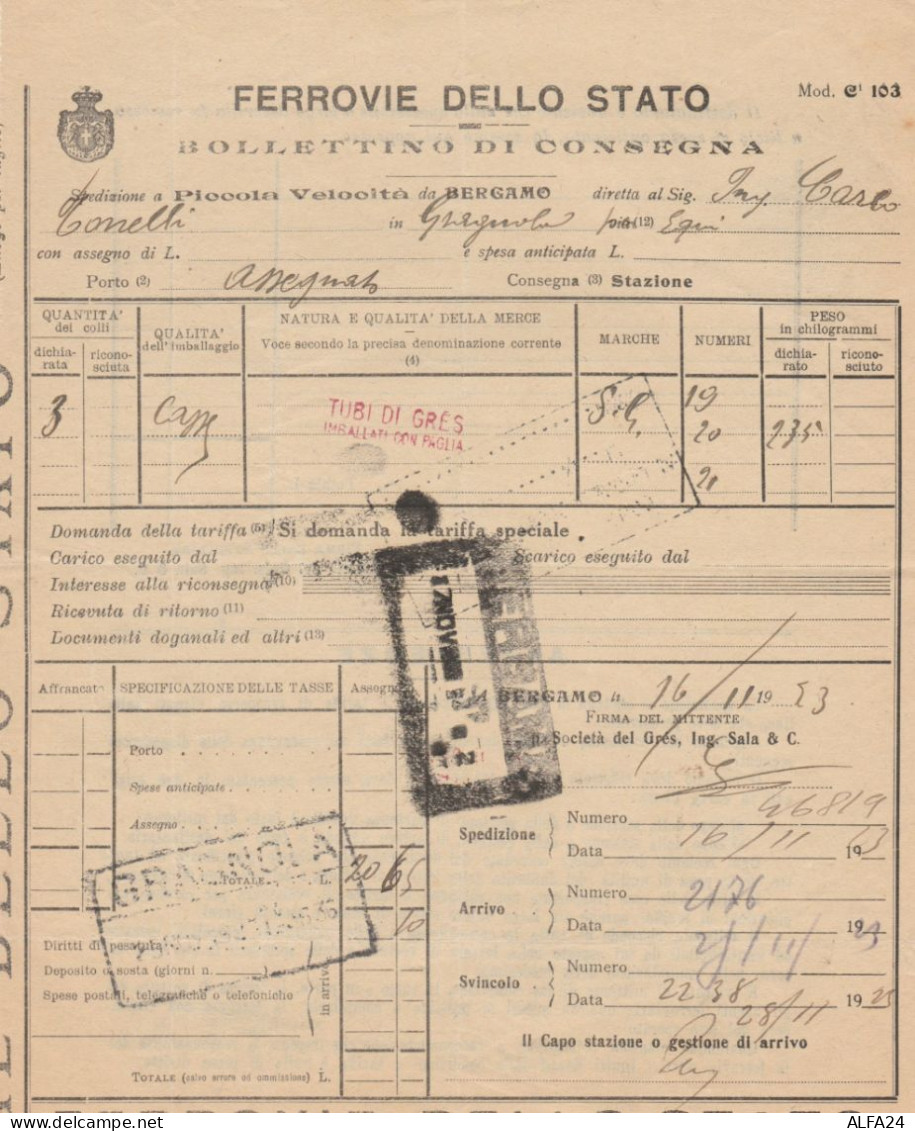 FERROVIE DELLO STATO
Mod. Cⁱ 103
BOLLETTINO DI CONSEGNA
Spedizione a Piccola Velocità da BERGAMO diretta al Sig. Ing. Carlo
Tonelli in Gragnola (12) Equi
con assegno di L. e spesa anticipata L.
Porto (2) Assegnato Consegna (3) Stazione
QUANTITA' dei colli
dichia-rata
ricono-sciuta
QUALITA' dell'imballaggio
NATURA E QUALITA' DELLA MERCE
Voce secondo la precisa denominazione corrente
(4)
MARCHE
NUMERI
PESO in chilogrammi
dichia-rato
ricono-sciuto
3
TUBI DI GRÈS
IMBALLATI CON PAGLIA
19
20
235
21
Domanda della tariffa (5) Si domanda la tariffa speciale
Carico eseguito dal Scarico eseguito dal
Interesse alla riconsegna (10)
Ricevuta di ritorno (11)
Documenti doganali ed altri (13)
Affrancato
SPECIFICAZIONE DELLE TASSE
Assegn
7 NOV
BERGAMO li 16/11 1923
FIRMA DEL MITTENTE
Società del Grès, Ing. Sala & C.
Porto
Spese anticipate
Assegno
TOTALE L. 20 65
10
GRAGNOLA
Spedizione
Numero 46819
Data 16/11 1923
Arrivo
Numero 2176
Data 1923
Svincolo
Numero 2238
Data 28/11 1923
Diritti di pesatura
Deposito o sosta (giorni n. )
Spese postali, telegrafiche o telefoniche
in arrivo
Il Capo stazione o gestione di arrivo
TOTALE (salvo errore ed ommissione) L.
ALFA24